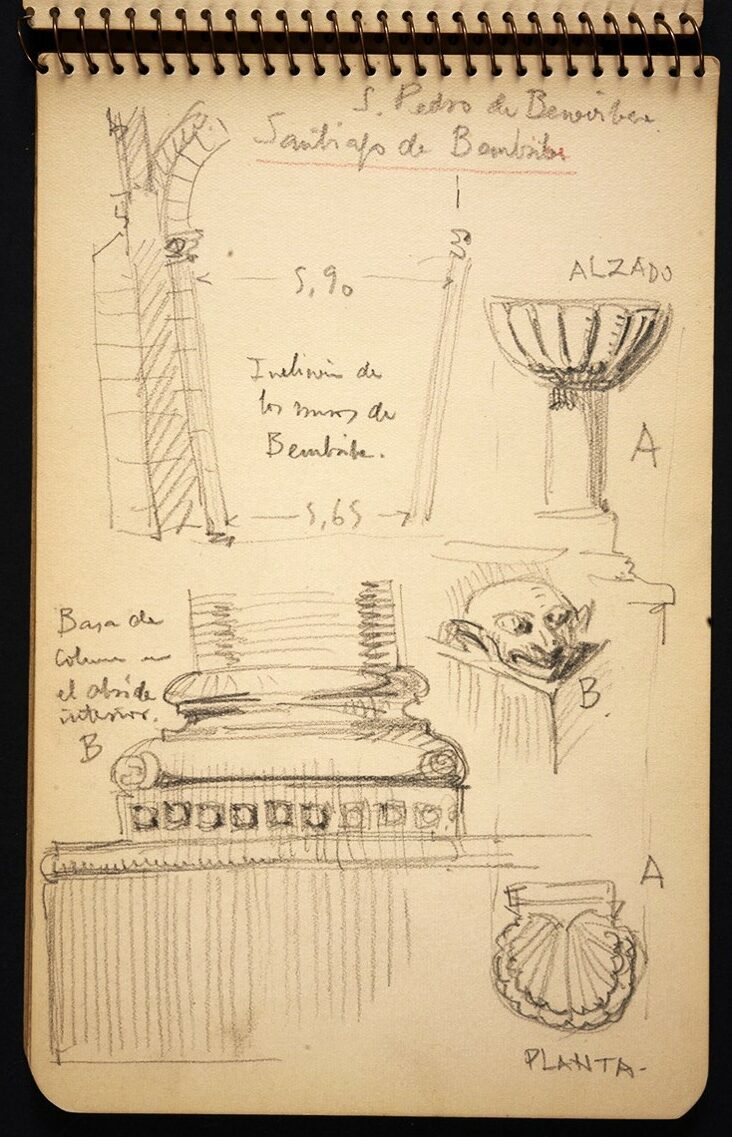 S. Pedro de Benvibre
Santiago de Bembibre
ALZADO
5,90
A
Inclinión de
los muros de
Bembibre.
5,65
Basa de
Columna en
el abside
interior.
B
B.
A
PLANTA-